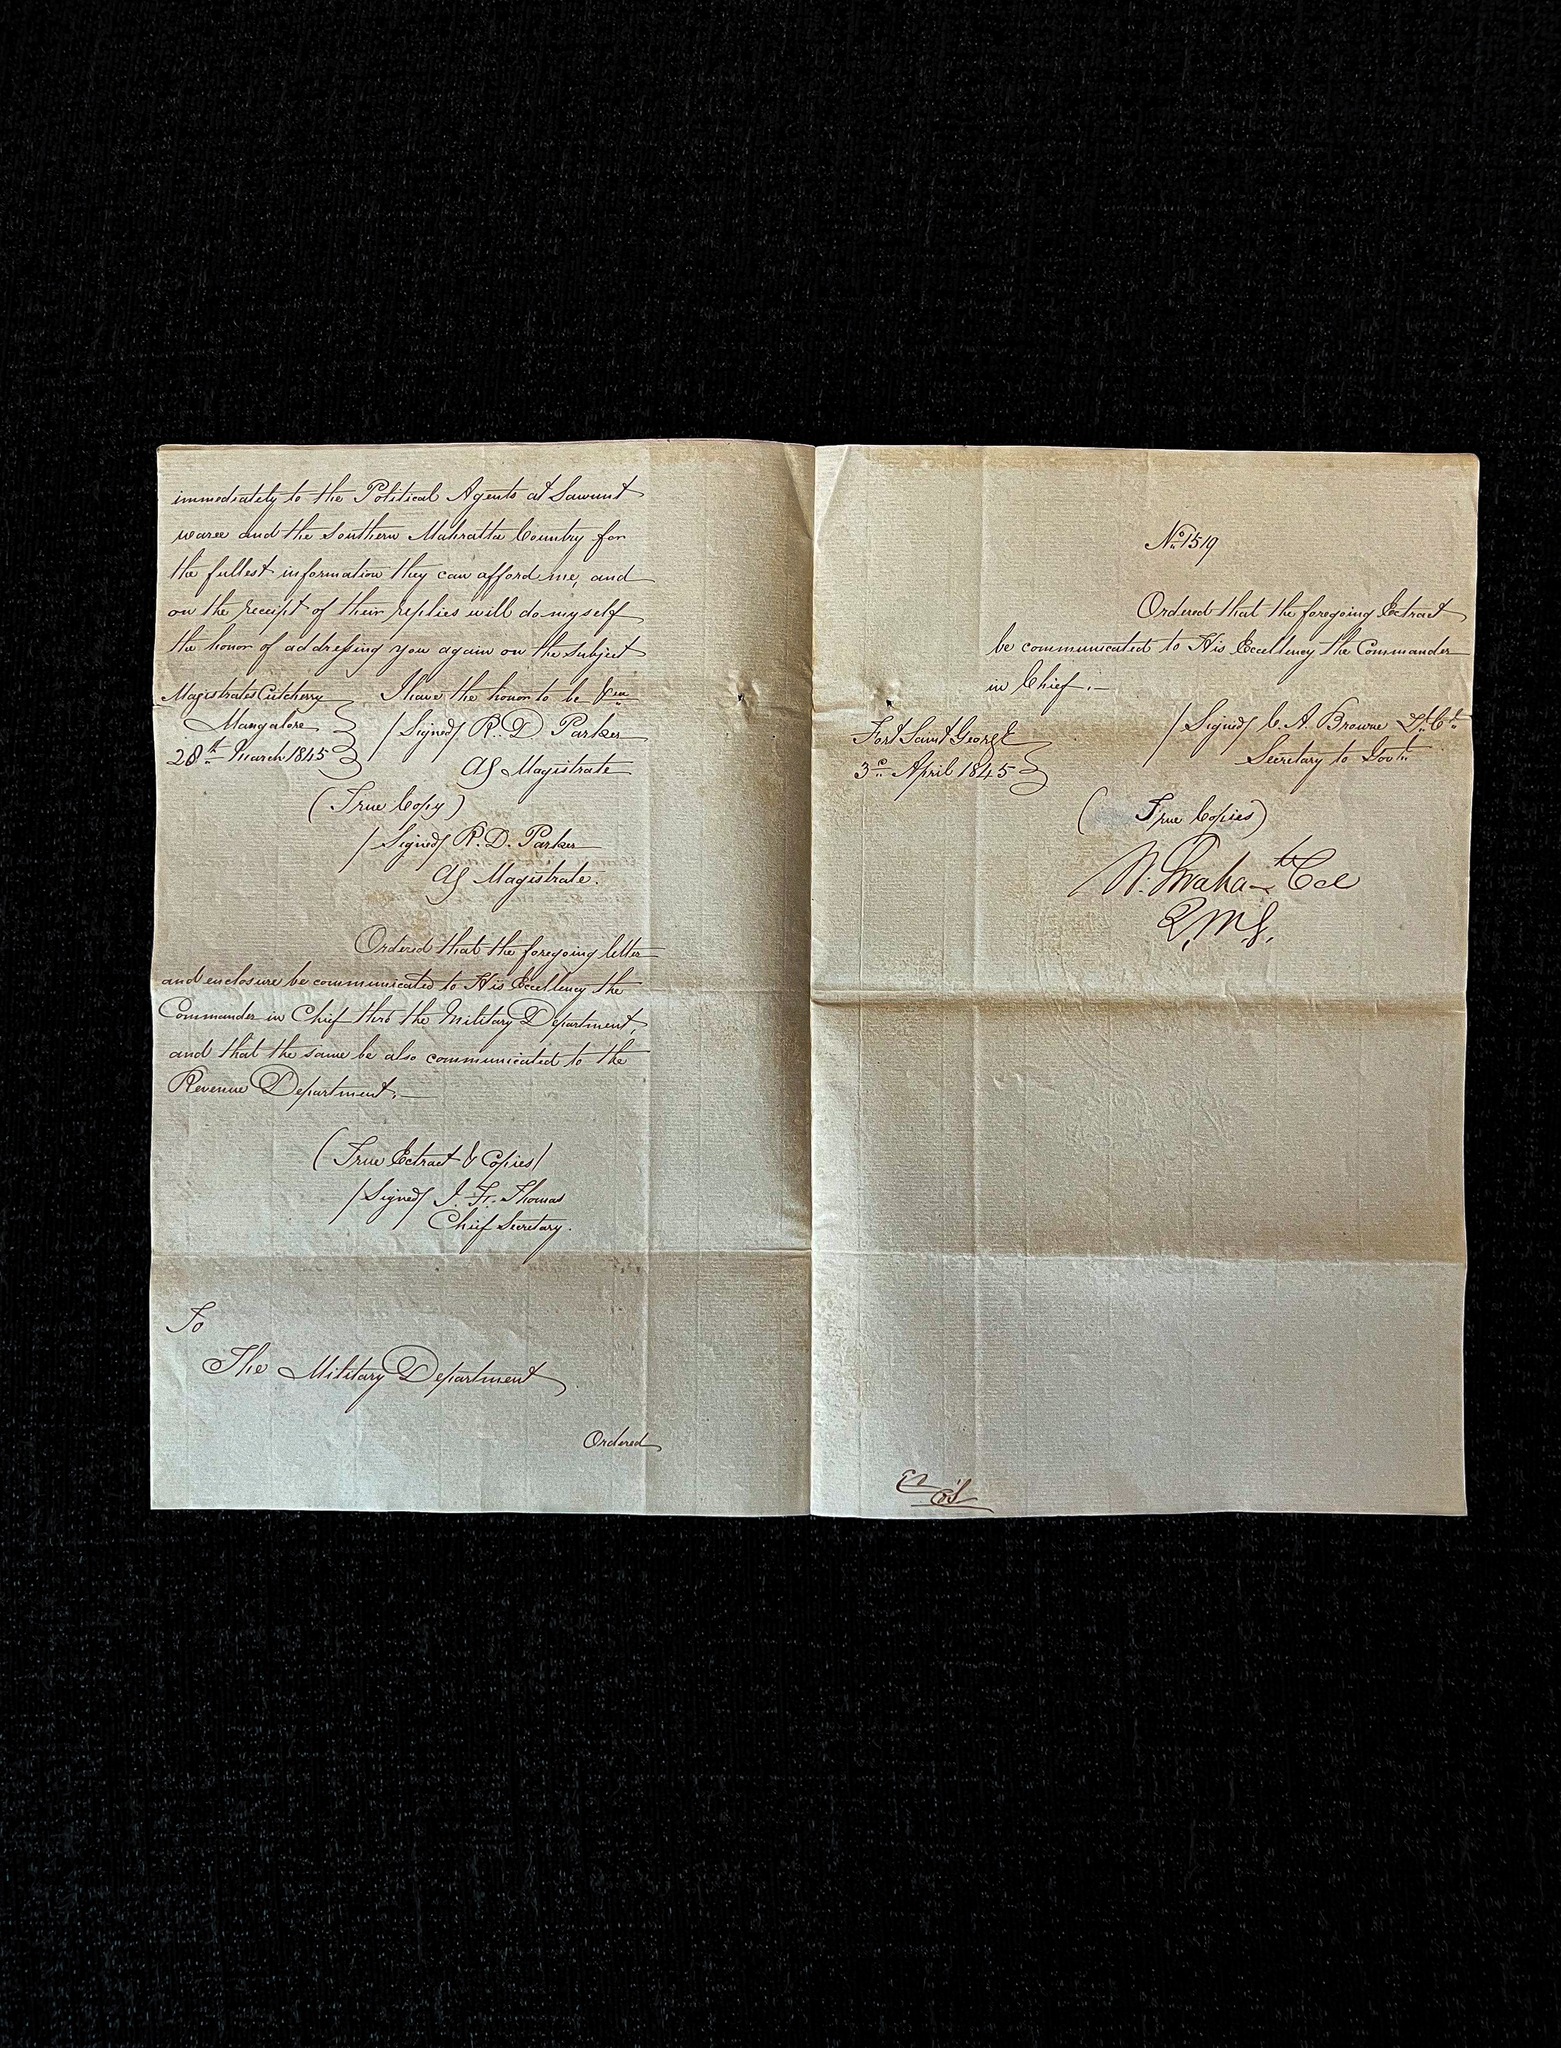 immediately to the Political Agents at Sawunt
waree and the Southern Mahratta Country for
the fullest information they can afford me, and
on the receipt of their replies will do myself
the honor of addressing you again on the subject
Magistrates Cutcherry I have the honor to be &ca
Mangalore /Signed/ R. D Parker
28th March 1845 Ag Magistrate
(True Copy)
/Signed/ R. D. Parker
Ag Magistrate.
Ordered that the foregoing letter
and enclosure be communicated to His Excellency the
Commander in Chief thro the Military Department,
and that the same be also communicated to the
Revenue Department.—
(True Extract & Copies/
/Signed/ J. F. Thomas
Chief Secretary.
To
The Military Department
Ordered
No 1519
Ordered that the foregoing Extract
be communicated to His Excellency the Commander
in Chief.—
Fort Saint George /Signed/ C. A. Browne Lt. Cl.
3rd April 1845 Secretary to Govt.
(True Copies)
Col
Q.M.G.